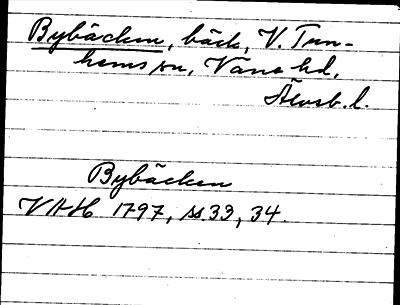 Bybäcken, bäck, V. Tun-
hems sn, Väne hd,
Älvsb. l.
Bybäcken
VAH 1797, ss. 33, 34.